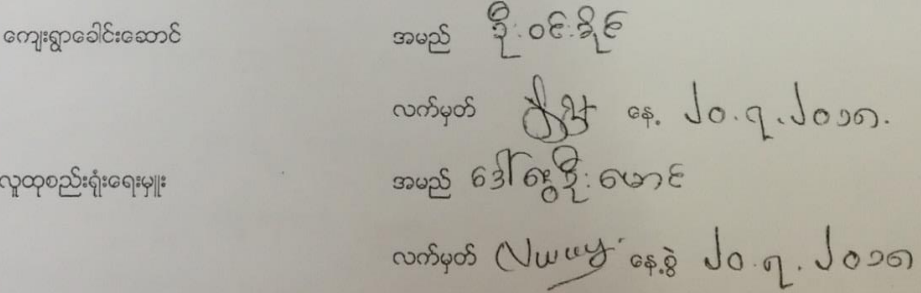 ကျေးရွာခေါင်းဆောင် အမည် ဦးဝင်းခိုင်
လက်မှတ် နေ့ ၂၀.၇.၂၀၁၈.
လူထုစည်းရုံးရေးမှူး အမည် ဒေါ်
လက်မှတ် နေ့စွဲ ၂၀.၇.၂၀၁၈